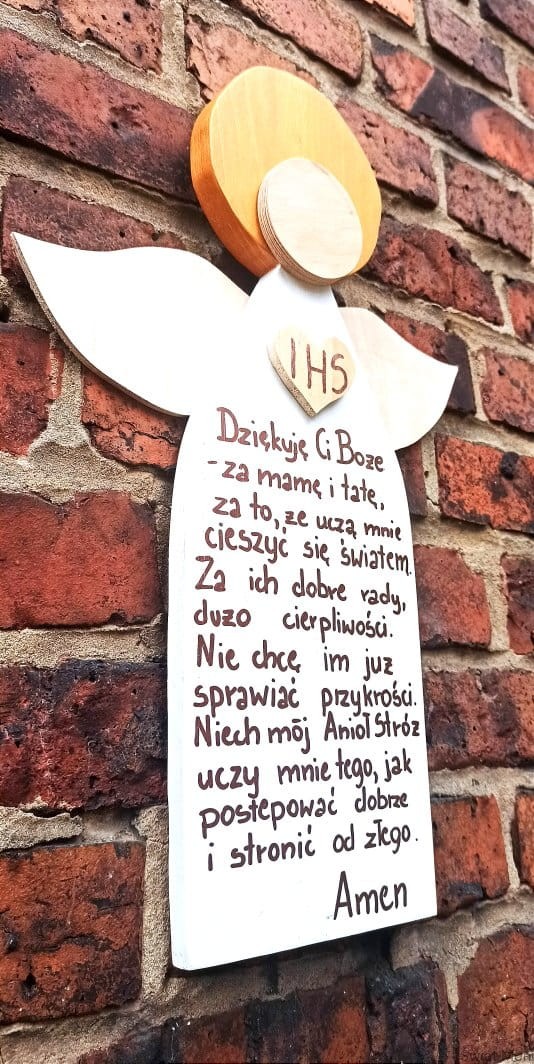 IHS
Dziękuję Ci Boże
-za mamę i tatę,
za to, że uczą mnie
cieszyć się światem.
Za ich dobre rady,
dużo cierpliwości.
Nie chcę im już
sprawiać przykrości.
Niech mój Anioł Stróż
uczy mnie tego, jak
postępować dobrze
i stronić od złego.
Amen